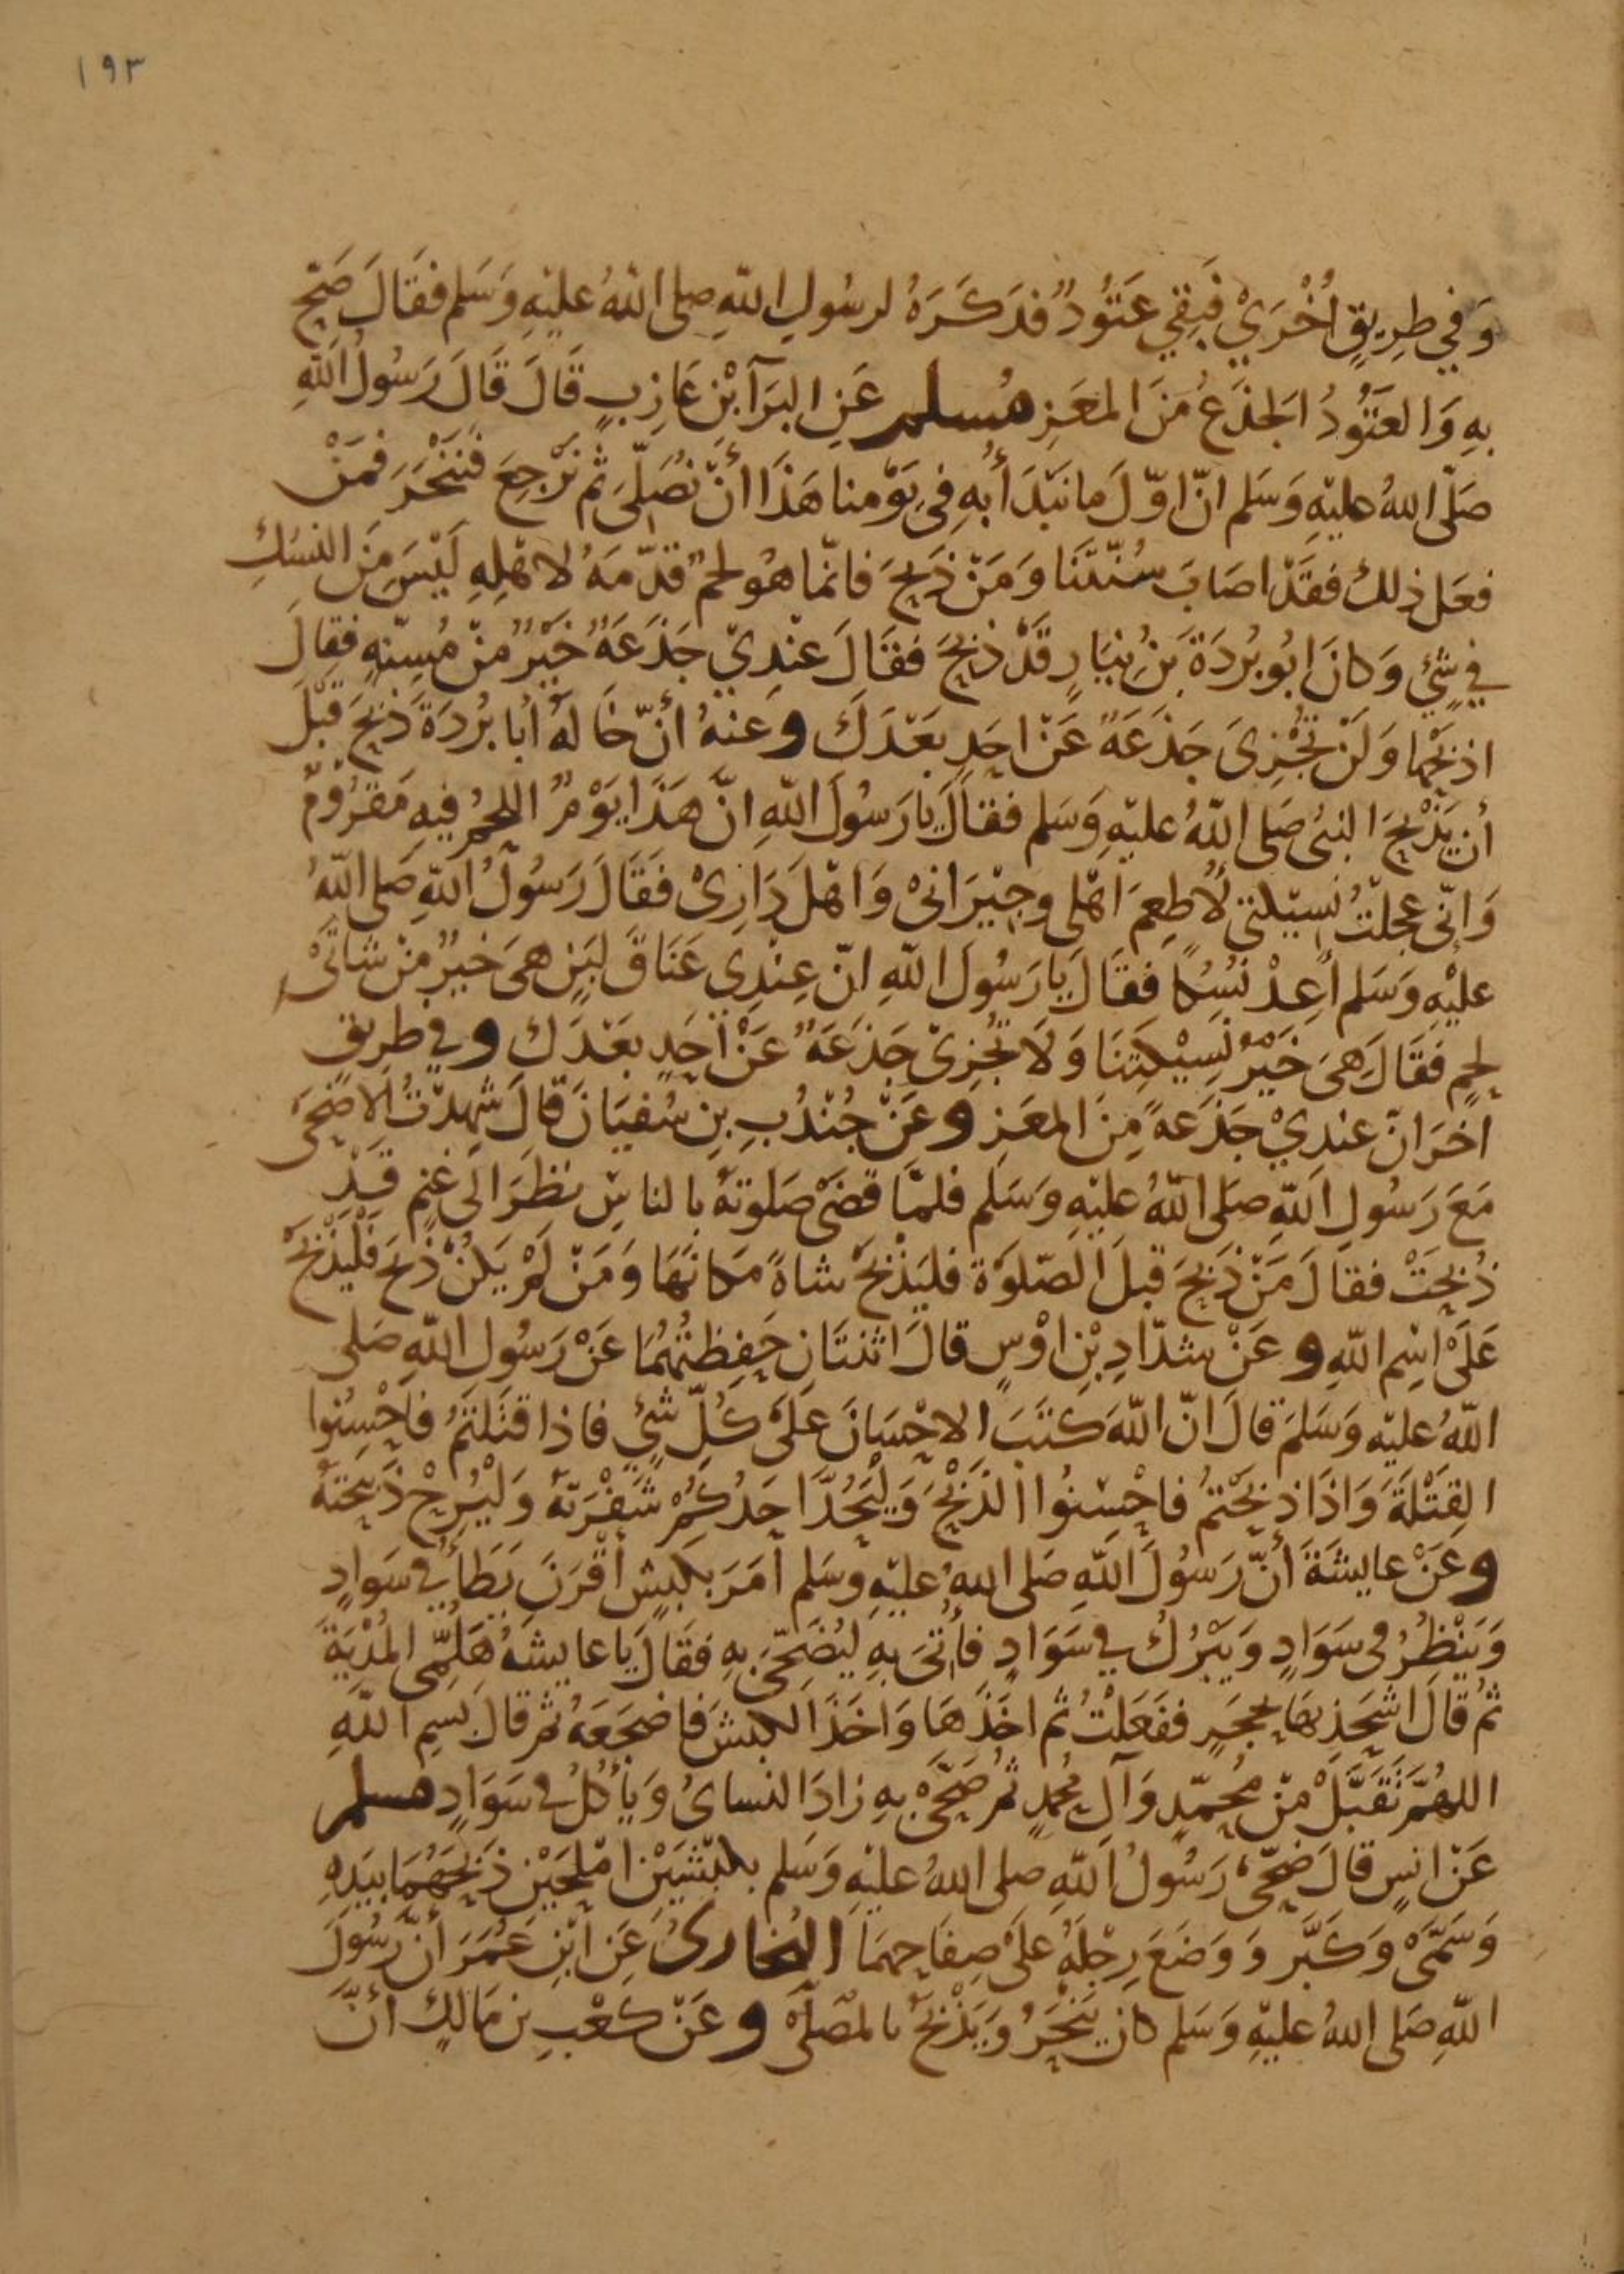 ١٩٣
وَفِي طَرِيقٍ اُخْرَيْ فَبَقِي عَتُودٌ فَذَكَرَهُ لرسُولِ اللّهِ صلى اللّهُ عليْهِ وَسَلم فقَالَ ضَحِّ
بهِ وَالعَتُودُ الجَذَعُ مَنَ المعَزِ مُسلم عَنِ البَرَآ ابْنِ عَازِبٍ قَالَ قَالَ رَسُولُ اللّهِ
صَلّى اللهُ عليْهِ وَسَلم انّ اوّلَ ما نَبْدَأُ بهِ فِى يَوْمنا هَذَا أنْ نُصَلّىَ ثم نَرْجِعَ فنَنْحَرَ فمَنْ
فعَل ذلك فقَدْ اصَابَ سُنّتَنَا وَمَنْ ذَبَحَ فانّما هُو لحمٌ قدّمَهُ لاهْلِهِ لَيْسَ مِنَ النسُكِ
في شَيْءٍ وَكانَ ابُو بُرْدَةَ بَنُ نِيَارٍ قَدْ ذَبَحَ فقَالَ عنْدِيْ جَذَعَةٌ خَيْرٌ منْ مُسِنّهٍ فقالَ
اذبَحْهَا وَلَنْ تُجْزِىَ جَذَعَةٌ عَنْ احَدٍ بَعْدَكَ وعنهُ أنّ خَالَهُ أبا بُرْدَةَ ذَبَحَ قبْلَ
أن يَذْبَحَ النبىُ صَلى اللّهُ عليْهِ وَسَلم فقالَ يا رَسُولَ اللّهِ انّ هَذَا يَوْمٌ اللحمُ فيهِ مَقرُوْمٌ
وَانّى عجلْتُ نسِيْكتي لأطعِمَ اهْلى وجِيْرَانىْ وَاهْلَ دَارِىْ فَقَالَ رَسُولُ اللّهِ صَلى اللّهُ
عليْهِ وَسَلم أعِدْ نُسُكًا فقَالَ يا رَسُولَ اللّهِ انّ عِنْدِى عَنَاقَ لبَنٍ هىَ خيرٌ منْ شاتَىْ
لحمٍ فقَالَ هىَ خَيْرُ نسِيْكتِنَا وَلاَ تُجْزِىْ جَذَعَةٌ عَنْ أحَدٍ بَعْدَكَ وفي طرِيقٍ
اخَرَ انّ عنديْ جَذَعةً مِنَ المعَزِ وعَنْ جُنْدُبِ بنِ سُفيَانَ قالَ شهدْتُ الاضْحَى
مَعَ رَسُولِ اللّهِ صلَى اللّهُ عليْهِ وَسَلم فلمّا قضَىْ صَلوتَهُ بالناسِ نظرَ الى غنمٍ قدْ
ذُبحَتْ فقالَ مَنْ ذَبحَ قبلَ الصّلوَة فليَذْبحْ شاةً مَكانَهَا وَمَنْ لمْ يَكنْ ذَبحَ فليَذْبحْ
عَلَىْ اسْمِ اللّهِ وعَنْ شدّادِ بْنِ اوْسٍ قالَ اثنتَانِ حَفِظتُهُمَا عَنْ رَسُولِ اللّهِ صَلى
اللّهُ عليْهِ وَسَلمَ قالَ انّ اللّهَ كتَبَ الاحْسَانَ عَلَى كلّ شَيْءٍ فاذا قتَلتُمْ فاَحْسِنُوا
القِتْلَةَ وَاذَا ذبَحْتمُ فاحْسِنُوا الذّبْحَ وَليَحُدَّ احَدُكُمْ شَفْرَتَهُ وَليُرِحْ ذبِيحَتَهُ
وعَنْ عايشَةَ أنّ رَسُولَ اللّهِ صَلى اللهُ عليْهِ وسَلم أمَرَ بكبشٍ أقْرَنَ يَطأُ في سَوَادٍ
وَيَنْظُرُ فى سَوَادٍ وَيَبْرُكُ في سَوَادٍ فأتىَ بهِ ليُضَحّىَ بهِ فقَالَ يا عايشَهُ هَلُمّى المُدْيَةَ
ثمُ قالَ اشحَذِيهَا بحجَرٍ ففَعَلتُ ثم اخَذَهَا وَاخَذَ الكبشَ فاضجَعَهُ ثم قالَ بسِمِ اللّهِ
اللهُمّ تَقَبَّلْ منْ مُحمّدٍ وَآلِ مُحمدٍ ثمُ ضَحّىْ بهِ زادَ النساىُ وَيَأْكُلُ في سَوَادٍ مسلم
عَنْ انسٍ قالَ ضحّىْ رَسُولُ اللّهِ صلى اللهُ عليْهِ وَسَلم بكبْشَيْنِ امْلحَيْنِ ذَبَحَهُمَا بيَدِهِ
وَسَمّىْ وَكَبَّر وَوَضَعَ رِجْلَهُ عَلىْ صِفاَحِهمَا البُخارىُ عَنِ ابْنِ عُمَرَ أنّ رَسُولَ
اللّهِ صَلى اللهُ عليْهِ وَسَلم كان يَنْحَرُ وَيَذْبَحُ بالمصَلّى وعَنْ كعْبِ بن مَالكٍ أنَّ